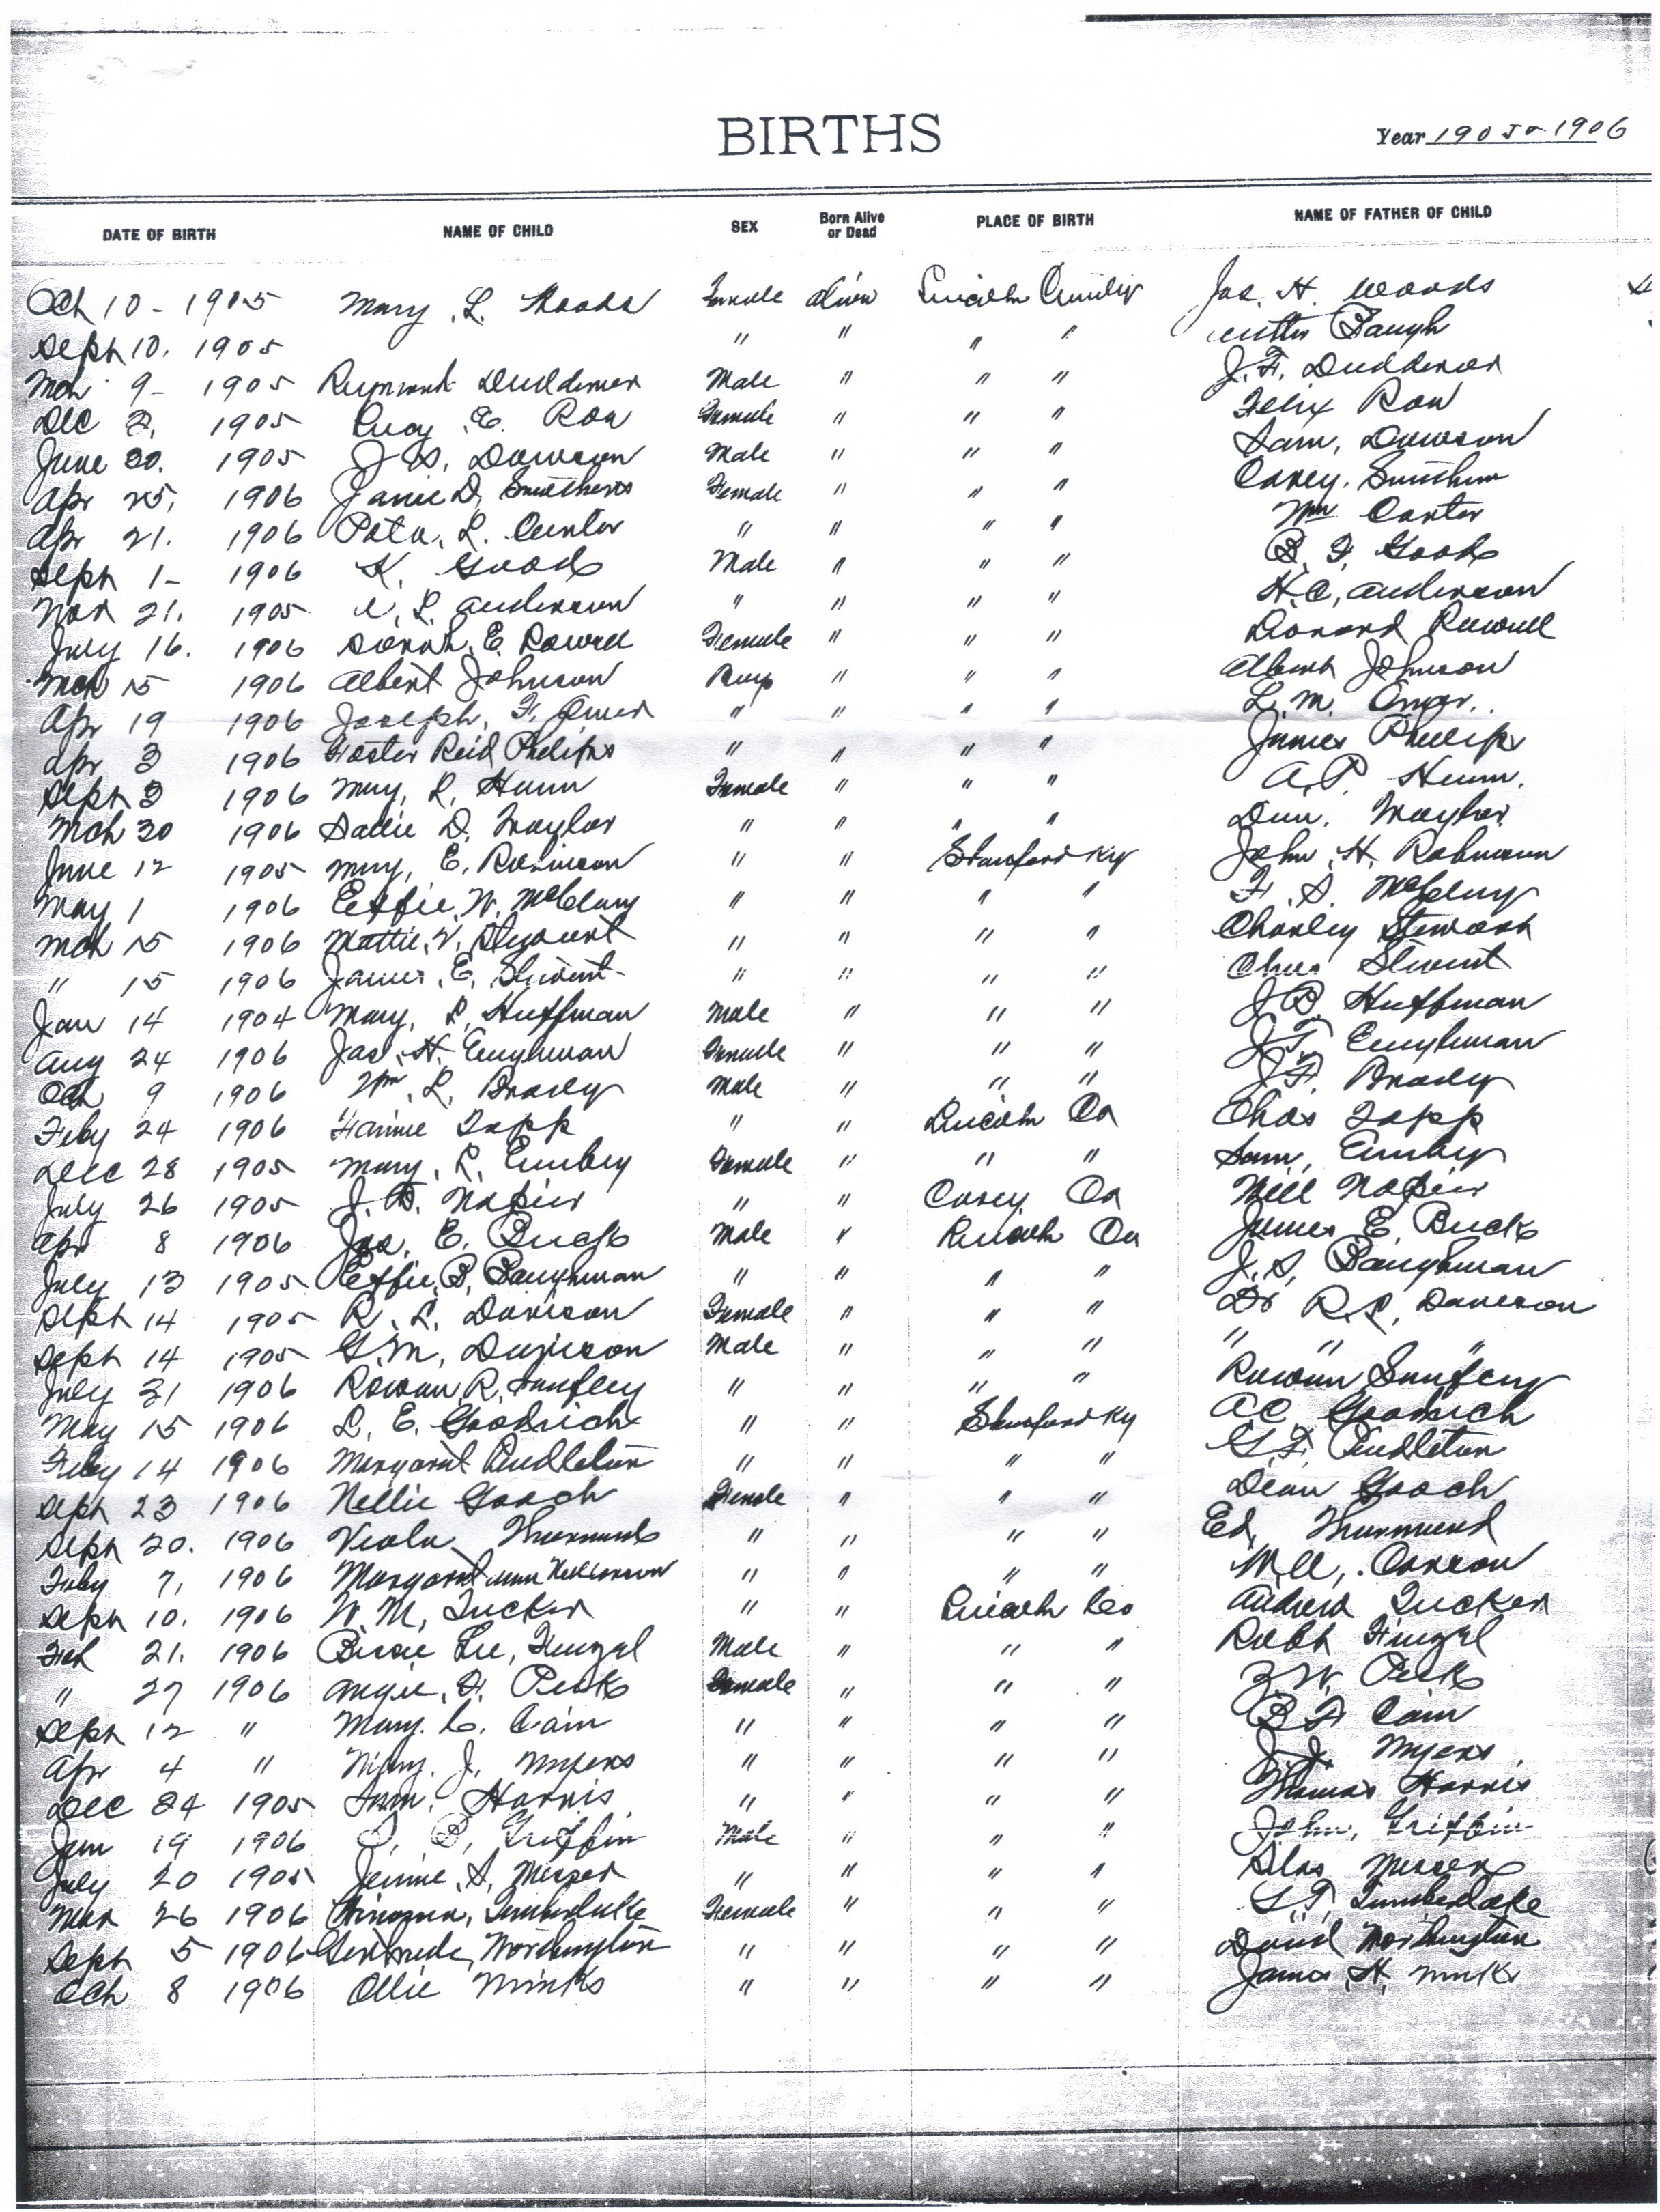 BIRTHS
Year 1905 - 1906
DATE OF BIRTH NAME OF CHILD SEX Born Alive or Dead PLACE OF BIRTH NAME OF FATHER OF CHILD
Oct 10 - 1905 Mary L. Woods Female Alive Lincoln County Jas. H. Woods
Sept 10. 1905 " " " " Baugh
Mch 9 - 1905 Dudderar Male " " " J. F. Dudderar
Dec 2. 1905 Lucy E. Row Female " " " Felix Row
June 30. 1905 J D. Dawson Male " " " Sam, Dawson
Apr 25, 1906 Janie D. Smithers Female " " " Carey.
Apr 21. 1906 L. Carter " " " " Wm Carter
Sept 1 - 1906 K. Goode Male " " " B. F. Goode
Nov 21. 1905 L. Anderson " " " " H. C. Anderson
July 16. 1906 Sarah. E. Powell Female " " "
Mch 15 1906 Albert Johnson Boy " " " Albert Johnson
Apr 19 1906 Joseph. F. " " " " L. M.
Apr 3 1906 Foster Reid Phelips " " " " James Phelips
Sept 3 1906 Mary, L. Hunn Female " " " A. P. Hunn.
Mch 30 1906 Sallie D. Traylor " " " " Traylor
June 12 1905 Mary, E. Robinson " " Stanford Ky John. H. Robinson
May 1 1906 Effie. W. McClary " " " " F. S. McClary
Mch 15 1906 Mattie. V. Stewart " " " " Charley Stewart
" 15 1906 James. E. Stewart " " " " Chas Stewart
Jan 14 1904 Mary, L. Huffman Male " " " J B. Huffman
Aug 24 1906 Jas. H. Female " " " J. T.
Oct 9 1906 Wm. L. Brady Male " " " J. F. Brady
Feby 24 1906 Fannie Tapp " " Lincoln Co Chas Tapp
Dec 28 1905 Mary. L. Embry Female " " " Sam, Embry
July 26 1905 J. B. Napier " " Casey Co Will Napier
Apr 8 1906 Jas. E. Bucks Male " Lincoln Co James E. Bucks
July 13 1905 Effie. B. Baughman " " " " J. S. Baughman
Sept 14 1905 R. L. Davison Female " " " Dr R. L. Davison
Sept 14 1905 G. M. Davison Male " " " " " "
July 31 1906 Rowan R. Saufley " " " " Rowan Saufley
May 15 1906 L. E. Goodrich " " Stanford Ky A C Goodrich
Feby 14 1906 Margaret Pendleton " " " " G. F. Pendleton
Sept 23 1906 Nellie Gooch Female " " " Dean Gooch
Sept 20. 1906 Viola Thurmond " " " " Ed, Thurmond
Feby 7, 1906 Margaret " " " " Carson
Sept 10. 1906 W. M. Tucker " " Lincoln Co Andrew Tucker
Feb 21. 1906 Bessie Lee, Finzel Male " " " Robt Finzel
" 27 1906 Angie. F. Peck Female " " " Z. W. Peck
Sept 12 " Mary. C. Cain " " " " B F Cain
Apr 4 " Mary. J. Myers " " " " J. J. Myers
Dec 24 1905 Harris " " " " Thomas Harris
Jan 19 1906 B. Griffin Male " " " John, Griffin
July 20 1905 Jennie. A. Messer " " " " Silas Messer
Mar 26 1906 Timberlake Female " " " S. T. Timberlake
Sept 5 1906 Gertrude Worthington " " " " David Worthington
Oct 8 1906 Ollie Minks " " " " James. H. Minks